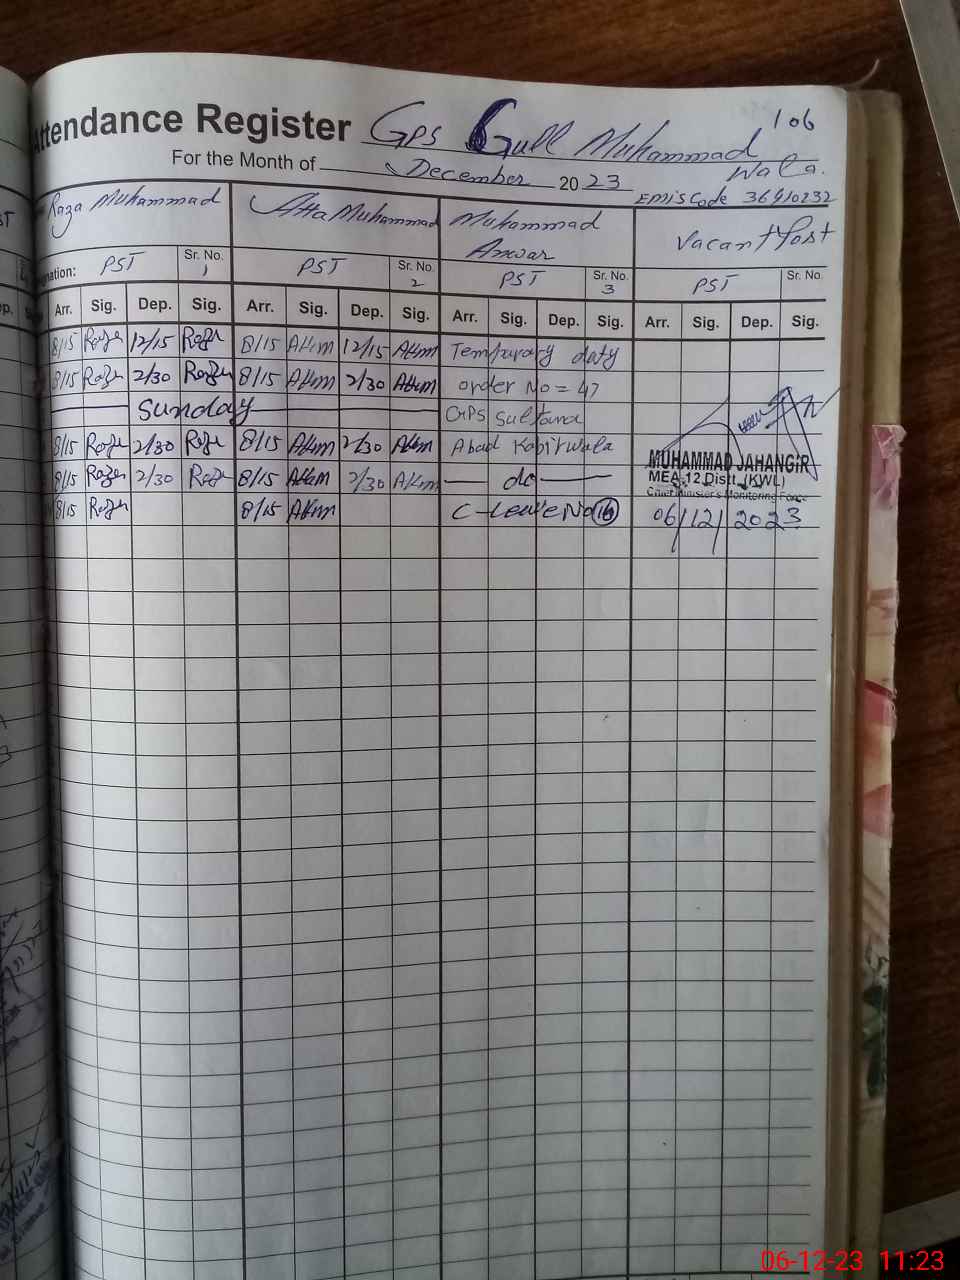 Attendance Register GPS Gull Muhammad Wala. 106
For the Month of December 2023 EMIS Code 36410232
Raza Muhammad Atta Muhammad Muhammad Anwar Vacant Post
nation: PST Sr. No. 1 PST Sr. No. 2 PST Sr. No. 3 PST Sr. No.
Arr. Sig. Dep. Sig. Arr. Sig. Dep. Sig. Arr. Sig. Dep. Sig. Arr. Sig. Dep. Sig.
8/15 12/15 8/15 12/15 Temporary duty
8/15 2/30 8/15 2/30 order No = 47
Sunday GPS Sultana
8/15 2/30 8/15 2/30 Abad Kabirwala
8/15 2/30 8/15 2/30 do
8/15 8/15 C-Leave No 16
MUHAMMAD JAHANGIR
MEA-12 Distt. (KWL)
Chief Minister's Monitoring Force
06/12/2023
06-12-23 11:23